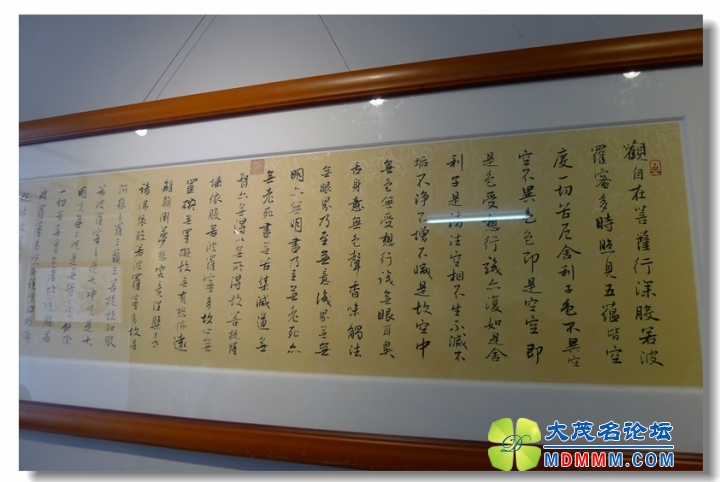 觀自在菩薩行深般若波
羅蜜多時照見五蘊皆空
度一切苦厄舍利子色不異空
空不異色色即是空空即
是色受想行識亦復如是舍
利子是諸法空相不生不滅不
垢不淨不增不減是故空中
無色無受想行識無眼耳鼻
舌身意無色聲香味觸法
無眼界乃至無意識界無無
明亦無無明盡乃至無老死亦
無老死盡無苦集滅道無
智亦無得以無所得故菩提薩
埵依般若波羅蜜多故心無
罣礙無罣礙故無有恐怖遠
離顛倒夢想究竟涅槃三世
諸佛依般若波羅蜜多故得
阿耨多羅三藐三菩提故知般
若波羅蜜多是大神咒是大
明咒是無上咒是無等等咒能除
一切苦真實不虛故說般若
大茂名论坛
MDMMM.COM